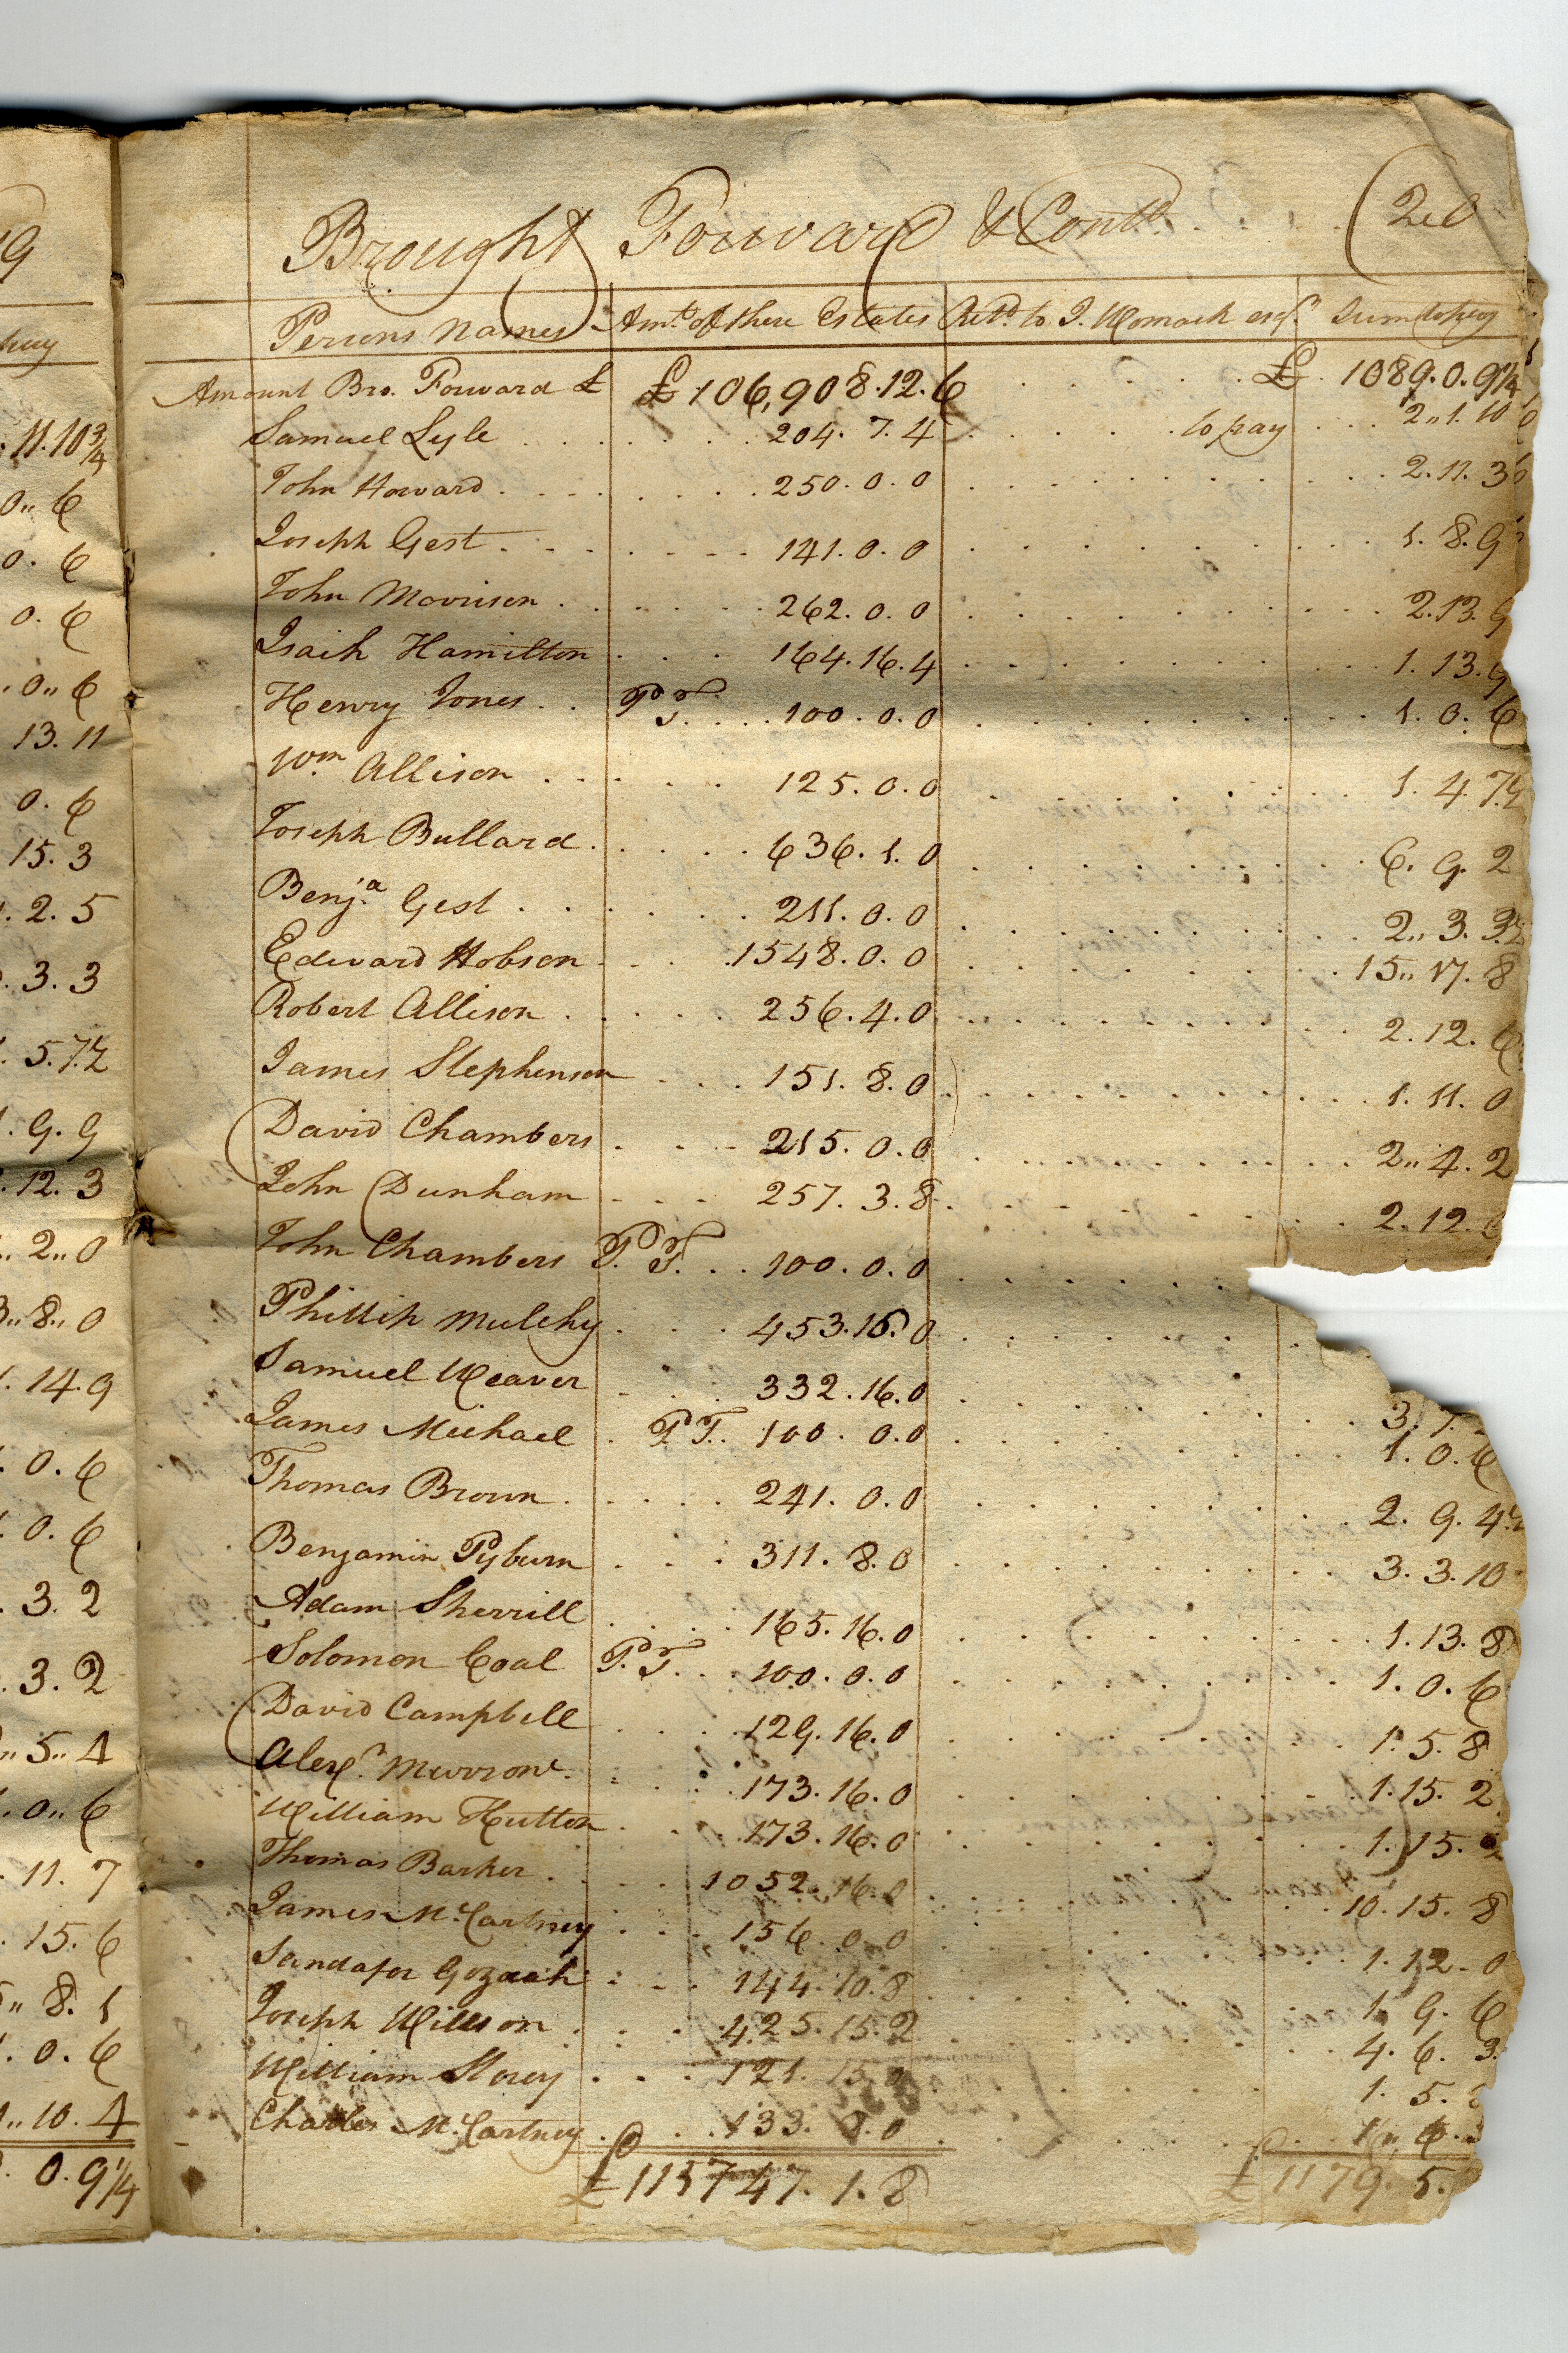 19
pay
11.10 3/4
0,, 6
0. 6
0. 6
. 0,, 6
13. 11
0. 6
15. 3
. 2. 5
. 3. 3
. 5. 7 1/2
. 9. 9
. 12. 3
. 2,, 0
3,, 8,, 0
. 14. 9
. 0. 6
. 0. 6
. 3. 2
. 3. 2
,, 5,, 4
. 0,, 6
. 11. 7
. 15. 6
,, 8. 1
. 0. 6
,, 10. 4
. 0. 9 1/4
Brought Forward & Contd. 20
Persons Names Amt. of there Estates Retd. to J. Womack esqr. Sum to pay
Amount Bro. Forward £ £ 106,908.12.6 £. 1089.0.9 1/4
Samuel Lyle 204. 7. 4 to pay 2,,1. 10
John Howard 250. 0. 0 2. 11. 3
Joseph Gest 141. 0. 0 1. 8. 9
John Morrison 262. 0. 0 2. 13. 9
Isaih Hamilton 164. 16. 4 1. 13. 9
Henry Jones P. T. 100. 0. 0 1. 0. 6
Wm. Allison 125. 0. 0 1. 4. 7 1/2
Joseph Bullard 636. 1. 0 6. 9. 2
Benja. Gest 211. 0. 0 2,, 3. 3 1/2
Edward Hobson 1548. 0. 0 15,, 17. 8
Robert Allison 256. 4. 0 2. 12. 6
James Stephenson 151. 8. 0 1. 11. 0
David Chambers 215. 0. 0 2,, 4. 2
John Dunham 257. 3. 8 2. 12.
John Chambers P. T. 100. 0. 0
Phillip Mulchy 453. 16. 0
Samuel Weaver 332. 16. 0 3.
James Michael P. T. 100. 0. 0 1. 0. 6
Thomas Brown 241. 0. 0 2. 9. 4 1/2
Benjamin Pyburn 311. 8. 0 3. 3. 10
Adam Sherrill 165. 16. 0 1. 13. 8
Solomon Coal P. T. 100. 0. 0 1. 0. 6
David Campbell 129. 16. 0 1. 5. 8
Alexr. Murrow 173. 16. 0 1. 15. 2
William Hutton 173. 16. 0 1. 15.
Thomas Barker 1052. 16. 0 10. 15. 8
James McCartney 156. 0. 0 1. 12. 0
Sandafor Gozach 144. 10. 8 1. 9. 6
Joseph Willson 425. 15. 2 4. 6. 3
William Storey 121. 15. 0 1. 5.
Charles McCartney 133. 8. 0 1,, 6.
£ 115747. 1. 8 £ 1179. 5.